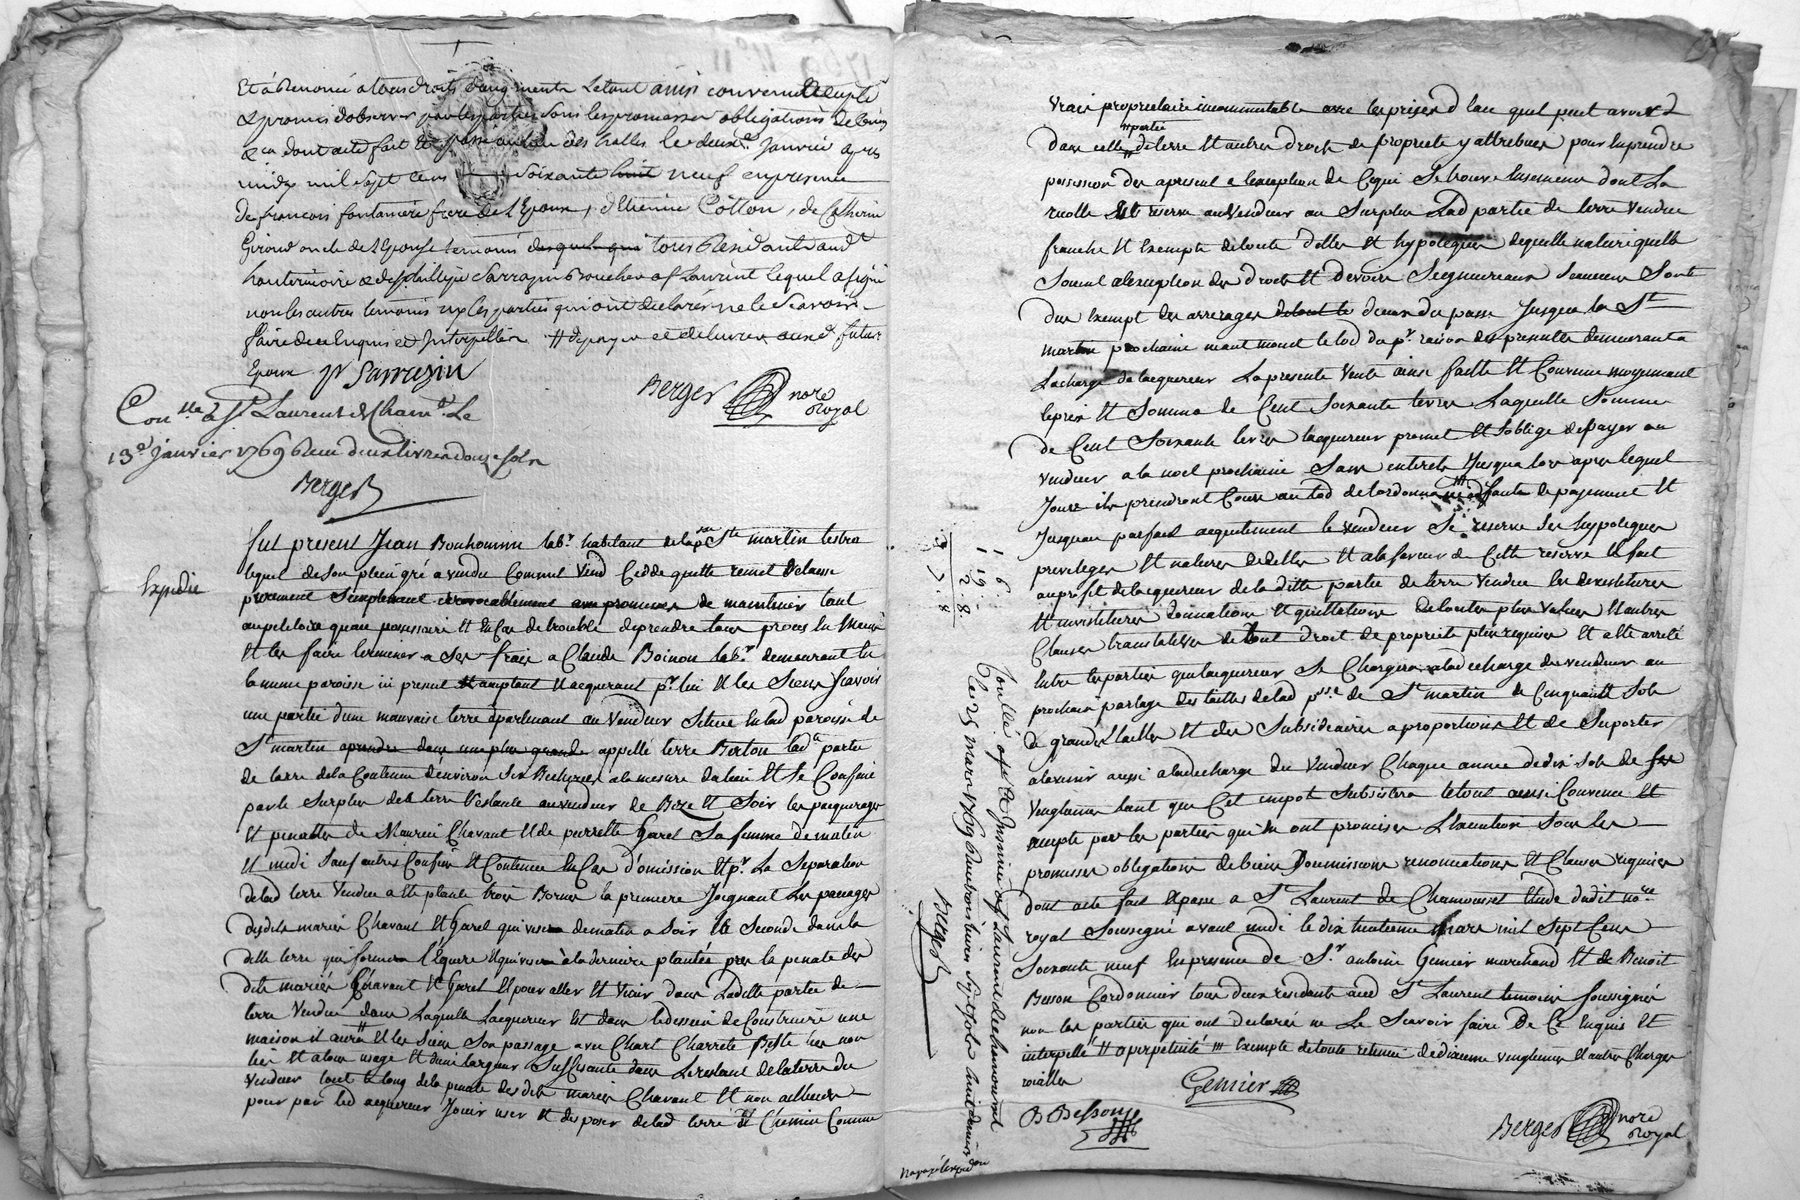 Et a Renoncé a tous droits d'augments Le tout ainsi convenu accepté
& promis d'observer par les parties sous les promesses obligations de biens
& ca dont acte fait et passé au lieu des halles le deuxe. Janvier apres
midy mil sept cens soixante huit neuf en presence
de francois fontaniere frere de L'Epoux, d'Etienne Cotton, de Catherin
Giroud oncle de L'Epouse temoins tous Residants aud.
hauterivoire & de Philippe Sarrazin Boucher a St Laurent lequel a signé
non les autres temoins ny les parties qui ont declarés ne le Scavoir
faire de ce Enquis et Interpellés # depayer et delivrer auxd. futur
Epoux P Sarrazin
Berger nore
Royal
Conlle a St Laurent de Cham. Le
13e Janvier 1769 Reçu deux livres douze sols
Berger
Expedié
fut present Jean Bonhomme labr. habitant de la psse St martin lestra
lequel de son plein gré a vendu Comme Vend Cedde quitte remet Delaisse
purement Simplement irrevocablement avec promesses de maintenir tant
au petitoire quau possessoire Et En Cas de trouble de prendre tous proces En Main
Et les faire terminer a Ses frais a Claude Boinon labr. demeurant En
la meme paroisse ici present Et acquerant pr. lui Et les Siens Scavoir
une partie d'une mauvaise terre apartenant au Vendeur Scituée En lad paroisse de
St martin appellé terre Berton lade partie
de terre de la Contenue d'environ Six Bicherées a la mesure du lieu Et Se Confine
par le Surplus de la terre Restante au vendeur de Bize Et Soir les pacquerages
Et penates de Maurice Chavant Et de pierrette Garel Sa femme de matin
Et midi Sauf autres Confins Et Contenue En Cas d'omission Et pr. La Separation
de lad terre Vendue a Ete planté trois Bornes la premiere Joignant Les pacages
desdits mariés Chavant Et Garel qui visera de matin a Soir la Seconde dans la
dette terre qui formera l'Equere Et qui visera a la derniere plantée pres la penate des
dits mariés Chavant Et Garel Et pour aller Et Venir dans Ladite partie de
terre Vendue dans Laquelle Lacquereur Est dans le dessein de Construire une
maison il aura # Et les Siens Son passage avec Chart Charrete Beste liés non
liés Et a tous usage Et d'une largeur Suffisante dans Le restant de la terre du
vendeur tout le long de la penate des dits mariés Chavant Et non ailleurs
pour par led acquereur Jouir user Et disposer de lad terre Et Chemin Comme
Vrais proprietaire incommutable avec les prises d'Eau quil peut avoir
dans cette # partie de terre Et autres droits de propriete y attribués pour En prendre
possession des apresent a l'exception de Ce qui Se trouve Ensemencé dont La
reolte Est reservé au Vendeur au Surplus Lad partie de terre Vendue
franche Et Exempte de toute dettes Et hypoteques de quelle nature quelle
Soient a l'exception des droits Et devoirs Seigneuriaux
dus Exempt des arrerages d'iceux du passé Jusqua la St
martin prochaine neant moins le lod du pr. raison des presentes demeurant a
La charge de lacquereur La presente Vente ainsi faitte Et Convenue moyennant
le prix Et Somme de Cent Soixante livres Laquelle Somme
de Cent Soixante livres lacquereur promet Et Soblige de Payer au
vendeur a la noel prochaine Sans interets Jusqua lors apres lequel
Jour ils prendront Cours au taud de lordonnance a defaut de payement Et
Jusquau parfait acquitement le vendeur Se reserve Ses hypoteques
privileges Et natures de dettes Et a la faveur de Cette reserve Il fait
au profit de lacquereur de la ditte partie de terre Vendue les devestitures
Et investitures donnations Et quittations de toutes plus Values Et autres
Clauses translatives de tout droit de propriete plus requises Et a Ete arreté
Entre les parties que lacquereur Se Chargera a la decharge du vendeur au
prochain partage des tailles de lad psse. de St martin de Cinquante Sols
de grandes tailles Et des Subsidiaires a proportions Et de Suporter
a lavenir aussi a la decharge du Vendeur Chaque année de dix Sols de
Vengtiemes tant que Cet impot Subsistera le tout ainsi Convenu Et
accepté par les parties qui En ont promises L'Execution Sous les
promesses obligations de biens Soumissions renonciations Et Clauses requises
dont acte fait Et passé a St Laurent de Chamousset Etude dudit nore
royal Soussigné avant midi le dix huitieme Mars mil Sept Cens
Soixante neuf En presence de Sr. antoine Gemier marchand Et de Benoit
Besson Cordonnier tous deux residants aud St Laurent temoins Soussignés
non les parties qui ont declarés ne Le Scavoir faire De Ce Enquis Et
interpellé # a perpetuité ### Exempte de toute retenue de dixieme vengtiemes Et autres Charges
roialles
Gemier
B Besson
Berger nore
Royal
6.
1 2
19. 8.
7. 8
Controllé a St Laurent de Chamousset
Le 25 mars 1769 Reçu trois livres Sept Sols huit deniers
Berger